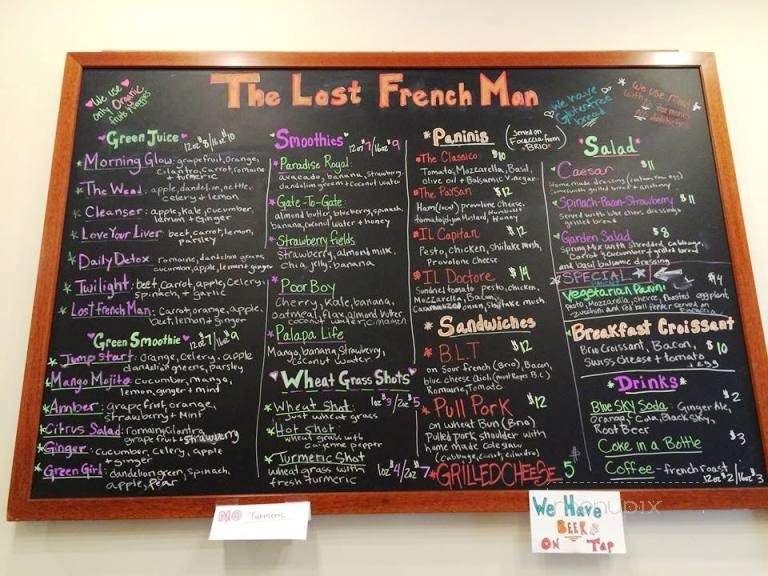 The Lost French Man
We use
only Organic
fruits + veggies
We have
Gluten free
bread
We use
Green Juice 12oz 8/16oz 10
Morning Glow: grapefruit, orange,
cilantro, carrot, romaine
+ turmeric
The Weed: apple, dandelion, nettle,
celery + lemon
Cleanser: apple, kale, cucumber,
lemon + ginger
Love Your Liver: beet, carrot, lemon,
parsley
Daily Detox romaine, dandelion greens,
cucumber, apple, lemon + ginger
Twilight: beet, carrot, apple, celery,
spinach, + garlic
Lost French Man: carrot, orange, apple,
beet, lemon + ginger
Green Smoothie
Jump start: orange, celery, apple
dandelion greens, parsley
Mango Mojito: cucumber, mango,
lemon, ginger + mint
Amber: grapefruit, orange,
strawberry + mint
Citrus Salad: romaine, cilantro,
grapefruit + strawberry
Ginger: cucumber, celery, apple
+ ginger
Green Girl: dandelion green, spinach,
apple, pear
Smoothies 12oz 7/16oz 9
Paradise Royal:
avocado, banana, strawberry,
dandelion greens + coconut water
Gate-To-Gate
almond butter, blueberry, spinach
banana, coconut water + honey
Strawberry fields
Strawberry, almond milk,
chia, jelly, banana
Poor Boy
Cherry, Kale, banana,
oatmeal, flax, almond butter
coconut water, cinnamon
Palapa Life
Mango, banana, Strawberry,
coconut water
Wheat Grass Shots
1oz 3/2oz 5
Wheat Shot:
just wheat grass
Hot shot:
wheat grass with
cayenne pepper
Turmeric Shot 1oz 4/2oz 7
wheat grass with
fresh turmeric
Paninis
(served on
Focaccia from
"BRIO")
The Classico: $10
Tomato, Mozzarella, Basil,
olive oil + Balsamic Vinegar
The Paisan $12
Ham (local) provolone Cheese,
IL Capitan $12
Pesto, Chicken, Shiitake Mush,
Provolone Cheese
IL Doctore $14
Sundried tomato pesto, chicken,
Mozzarella, Bacon,
Caramelized onion, Shiitake mush
Sandwiches
B.L.T $12
on Sour french (Brio), Bacon,
blue cheese Aioli (point Reyes B.C.)
Romaine, Tomato
Pull Pork $12
on wheat Bun (Brio)
Pulled pork shoulder with
home made coleslaw
(cabbage, carrot, cilantro)
GRILLED CHEESE 5
Salad
Caesar $11
Homemade dressing
with grilled bread + anchovy
Spinach-Pecan-Strawberry $11
Served with blue chees dressing +
grilled bread
Garden Salad $8
Spring Mix with Shredded Cabbage,
Carrot + cucumber + grilled bread
and basil balsamic dressing
SPECIAL
Vegetarian Panini $14
Pesto, Mozzarella, chevre, Roasted eggplant,
zucchini and Red bell pepper served on
Breakfast Croissant
Brio Croissant, Bacon, $10
Swiss cheese + tomato
+ egg
Drinks
Blue SKY Soda: Ginger Ale, $2
orange, Cola, Black Sky,
Root Beer
Coke in a Bottle $3
Coffee - french roast
12oz $2/16oz $3
NO Turmeric
We Have
BEER
On Tap
menupix